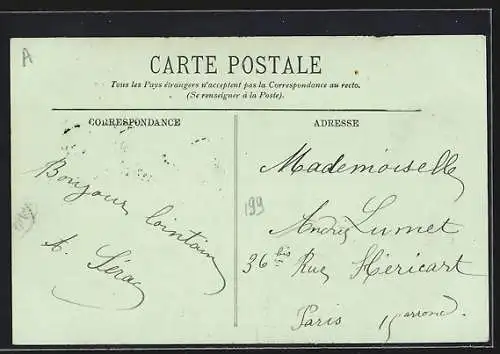 A
CARTE POSTALE
Tous les Pays étrangers n'acceptent pas la Correspondance au recto.
(Se renseigner à la Poste).
CORRESPONDANCE
ADRESSE
Bonjour lointain
A.
199
Mademoiselle
Lumet
36 bis Rue Héricart
Paris 15 arrond.